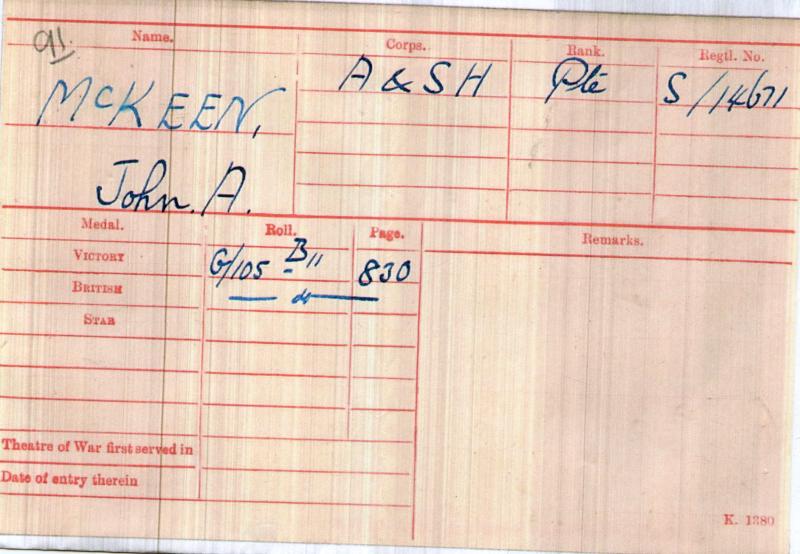 911
Name. Corps. Rank. Regtl. No.
McKEEN, A & SH Pte S/14671
John. A.
Medal. Roll. Page. Remarks.
VICTORY G/105 B11 830
BRITISH — do —
STAR
Theatre of War first served in
Date of entry therein
K. 1380